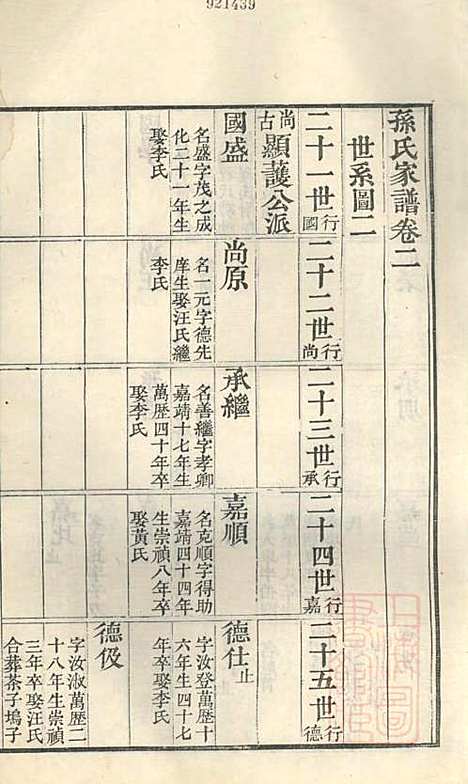 921439
孫氏家譜卷二
世系圖二
二十一世國行
二十二世尚行
二十三世承行
二十四世嘉行
二十五世德行
尚古顯護公派
國盛
名盛字茂之成
化二十一年生
娶李氏
尚原
名一元字德先
庠生娶汪氏繼
李氏
承繼
名善繼字孝卿
嘉靖十七年生
萬歷四十年卒
娶李氏
嘉順
名克順字得助
嘉靖四十四年
生崇禎八年卒
娶黃氏
德仕止
字汝登萬歷十
六年生四十七
年卒娶李氏
德伋
字汝淑萬歷二
十八年生崇禎
三年卒娶汪氏
合葬茶子塢子